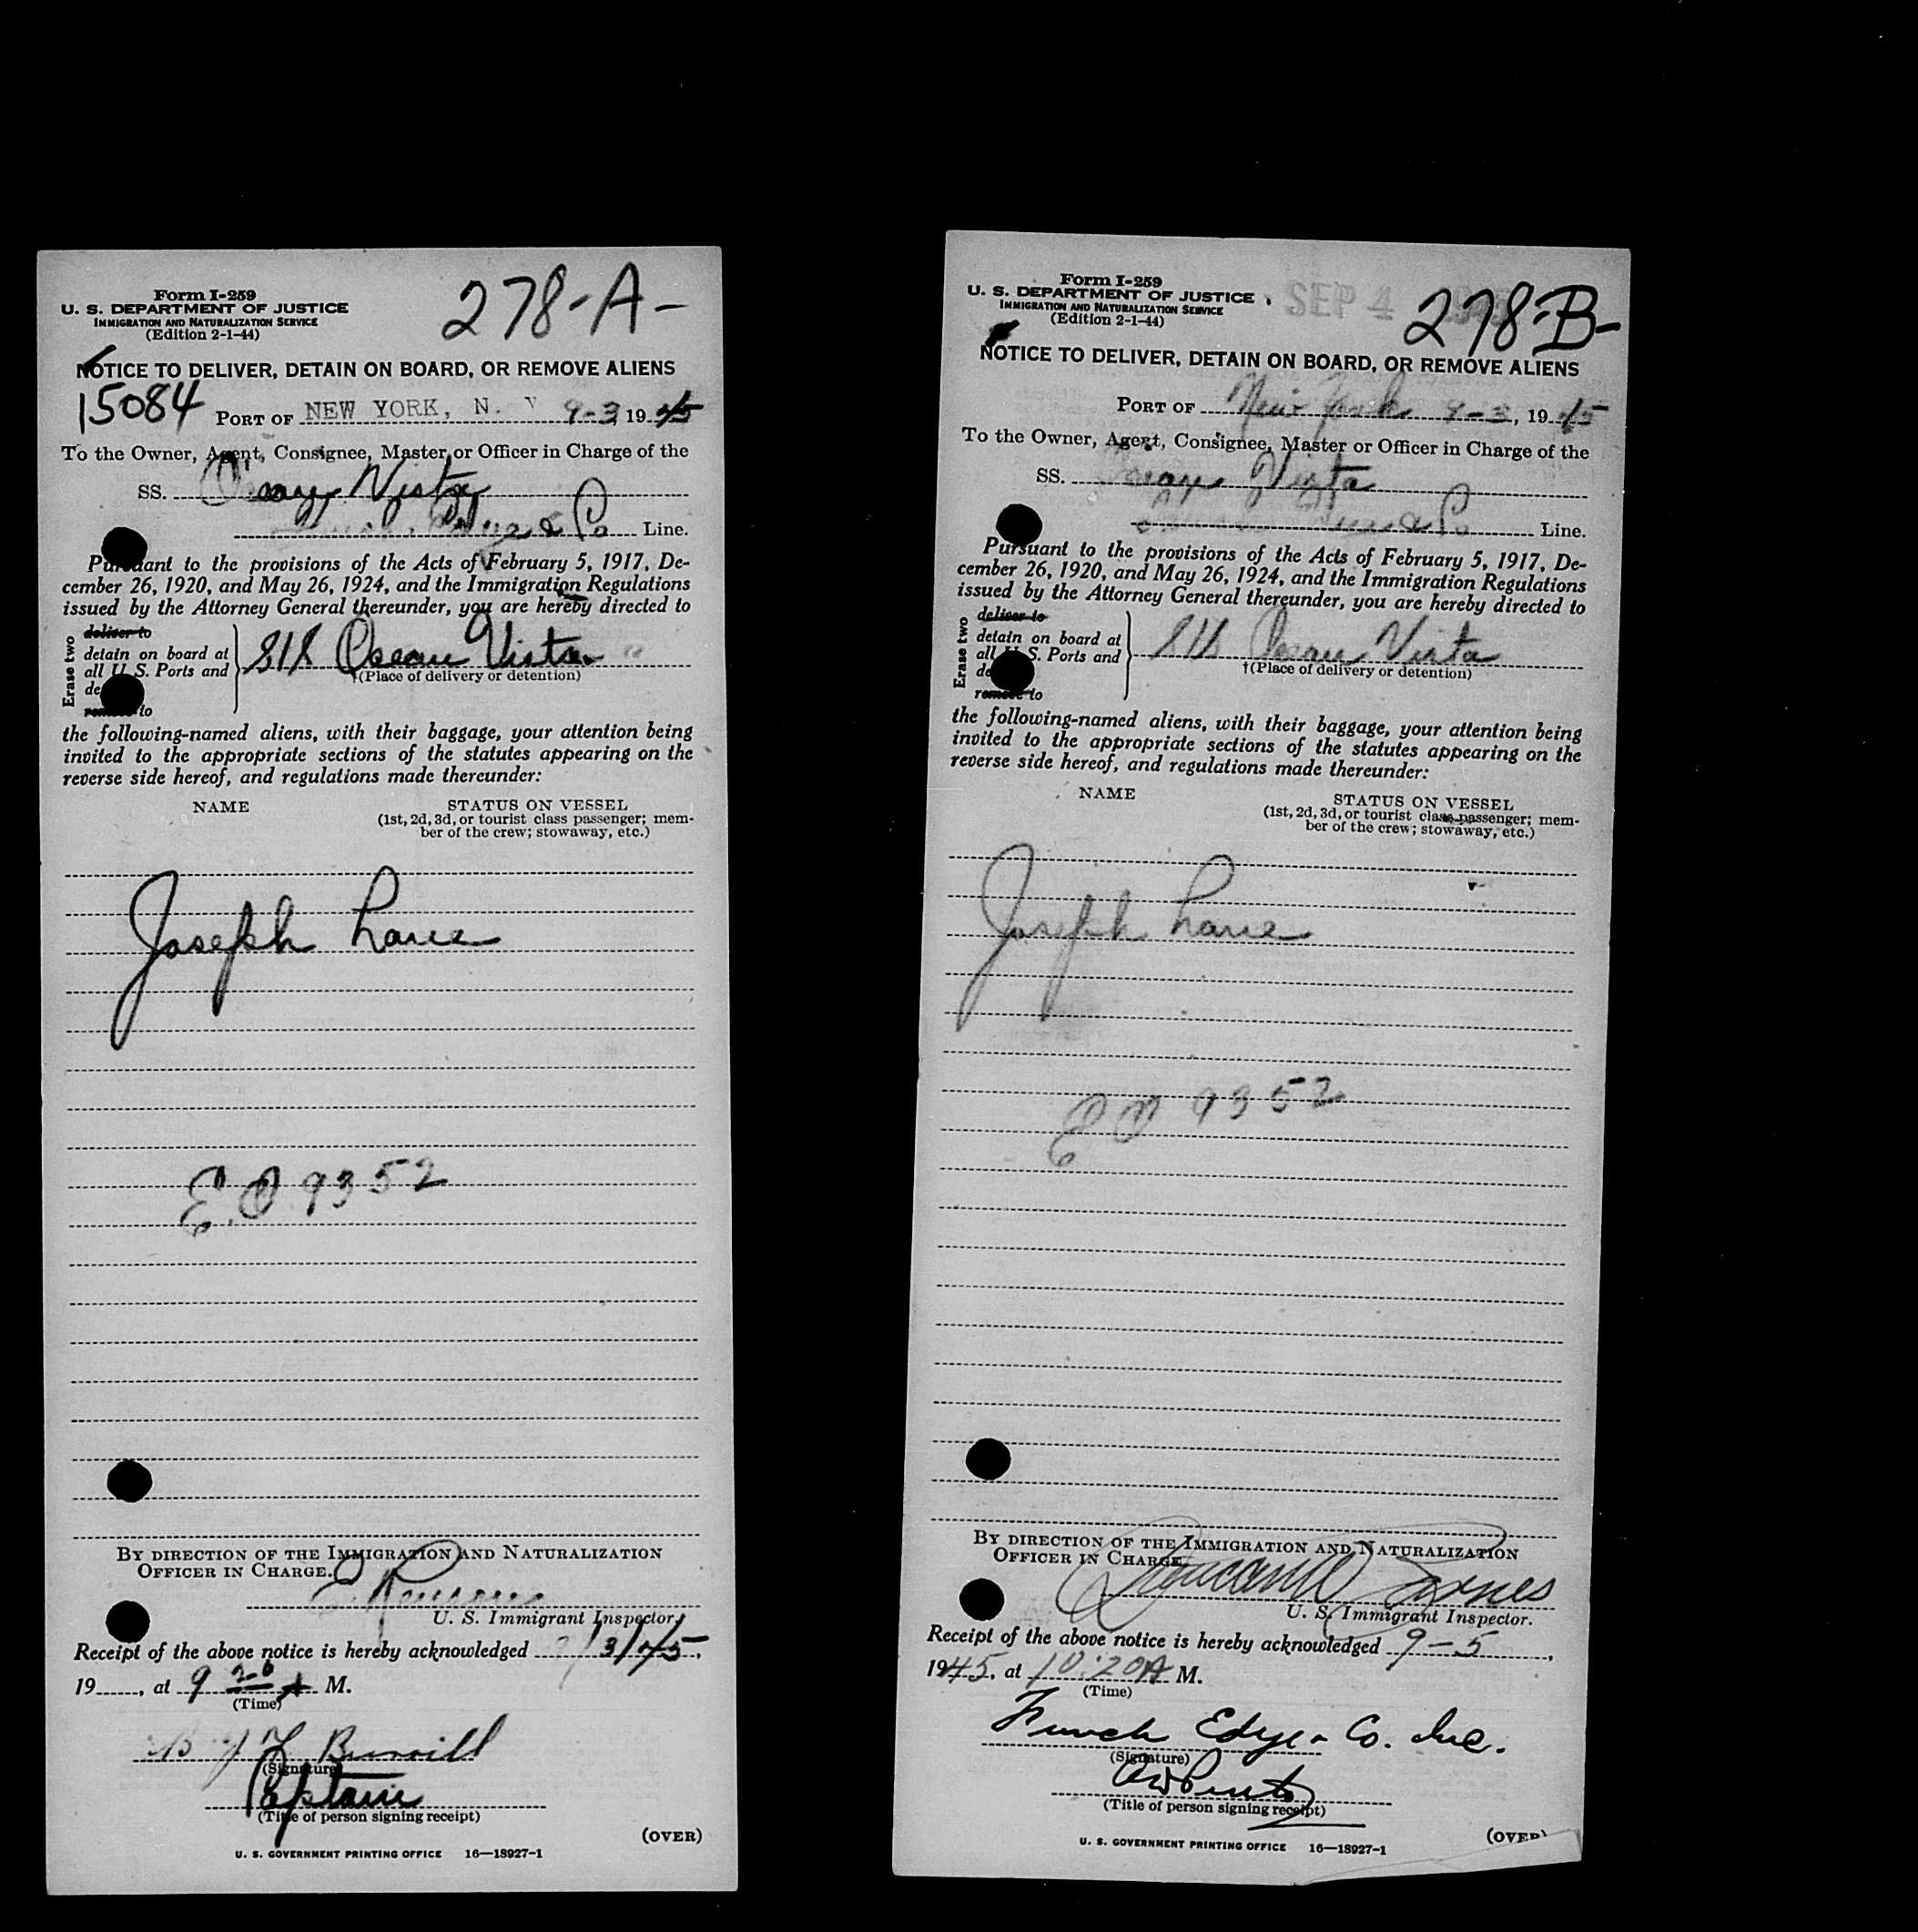 278-A-
Form I-259
U. S. DEPARTMENT OF JUSTICE
IMMIGRATION AND NATURALIZATION SERVICE
(Edition 2-1-44)
NOTICE TO DELIVER, DETAIN ON BOARD, OR REMOVE ALIENS
15084
PORT OF NEW YORK, N. Y 9-3 1945
To the Owner, Agent, Consignee, Master or Officer in Charge of the
SS. Vista
& Co Line.
Pursuant to the provisions of the Acts of February 5, 1917, De-
cember 26, 1920, and May 26, 1924, and the Immigration Regulations
issued by the Attorney General thereunder, you are hereby directed to
Erase two
deliver to
detain on board at
all U. S. Ports and
de
remove to
S/S Ocean Vista
†(Place of delivery or detention)
the following-named aliens, with their baggage, your attention being
invited to the appropriate sections of the statutes appearing on the
reverse side hereof, and regulations made thereunder:
NAME STATUS ON VESSEL
(1st, 2d, 3d, or tourist class passenger; mem-
ber of the crew; stowaway, etc.)
Joseph Lane
E.O 9352
BY DIRECTION OF THE IMMIGRATION AND NATURALIZATION
OFFICER IN CHARGE.
U. S. Immigrant Inspector.
Receipt of the above notice is hereby acknowledged 9/3/45,
19 , at 9 20 A M.
(Time)
(Signature)
Captain
(Title of person signing receipt)
(OVER)
U. S. GOVERNMENT PRINTING OFFICE 16—18927-1
SEP 4
278-B-
Form I-259
U. S. DEPARTMENT OF JUSTICE
IMMIGRATION AND NATURALIZATION SERVICE
(Edition 2-1-44)
NOTICE TO DELIVER, DETAIN ON BOARD, OR REMOVE ALIENS
PORT OF New York 9-3, 1945
To the Owner, Agent, Consignee, Master or Officer in Charge of the
SS. Ocean Vista
& Co Line.
Pursuant to the provisions of the Acts of February 5, 1917, De-
cember 26, 1920, and May 26, 1924, and the Immigration Regulations
issued by the Attorney General thereunder, you are hereby directed to
Erase two
deliver to
detain on board at
all U. S. Ports and
de
remove to
S/S Ocean Vista
†(Place of delivery or detention)
the following-named aliens, with their baggage, your attention being
invited to the appropriate sections of the statutes appearing on the
reverse side hereof, and regulations made thereunder:
NAME STATUS ON VESSEL
(1st, 2d, 3d, or tourist class passenger; mem-
ber of the crew; stowaway, etc.)
Joseph Lane
EO 9352
BY DIRECTION OF THE IMMIGRATION AND NATURALIZATION
OFFICER IN CHARGE.
U. S. Immigrant Inspector.
Receipt of the above notice is hereby acknowledged 9-5,
1945, at 10:20A M.
(Time)
Funch Edye & Co. Inc.
(Signature)
(Title of person signing receipt)
(OVER)
U. S. GOVERNMENT PRINTING OFFICE 16—18927-1